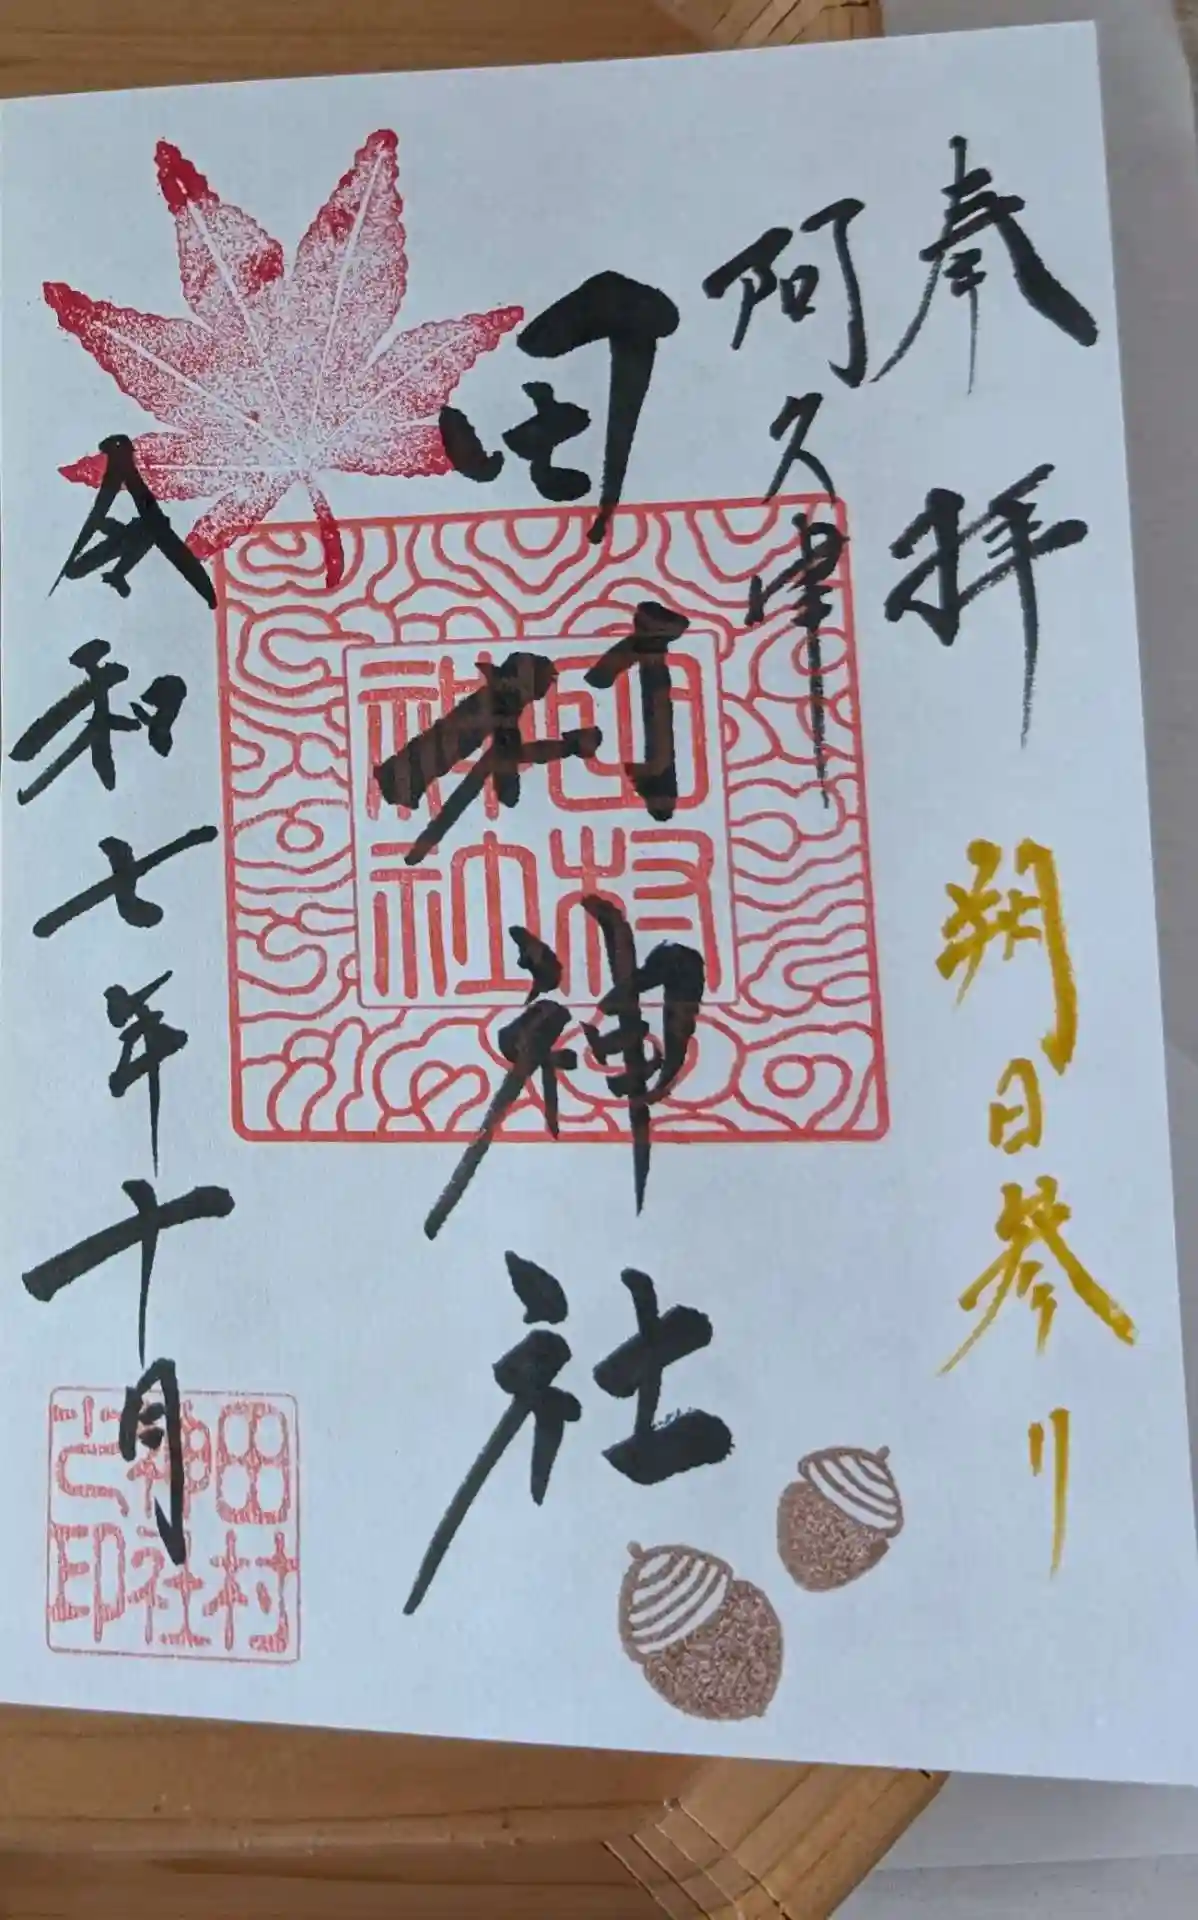 奉拝
朔日参り
阿久津
田村神社
田村
神社
令和七年十月
田村
神社
之印